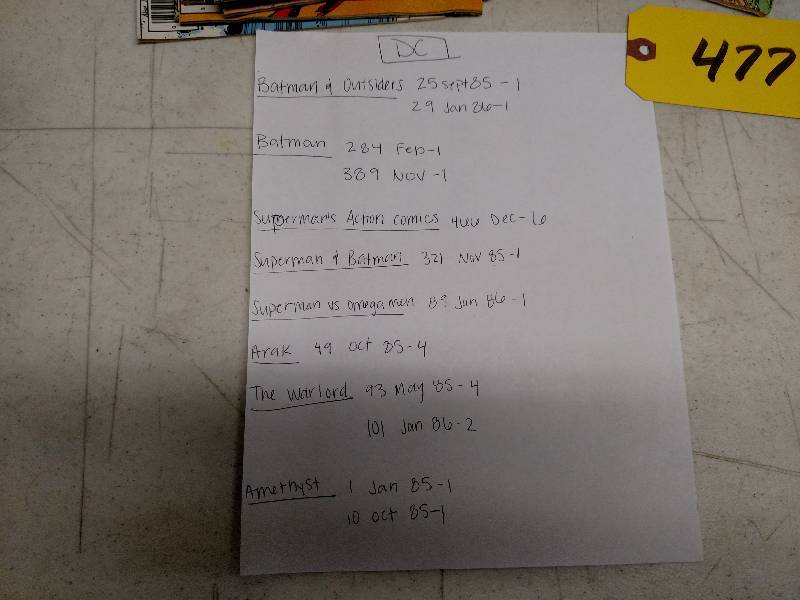 DC
477
Batman & Outsiders 25 sept 85 - 1
29 Jan 86 - 1
Batman 284 Feb - 1
389 Nov - 1
Superman's Action comics 466 Dec - 6
Superman & Batman 321 Nov 85 - 1
Superman vs omegamen 89 Jan 86 - 1
Arak 49 oct 85 - 4
The Warlord 93 May 85 - 4
101 Jan 86 - 2
Amethyst 1 Jan 85 - 1
10 oct 85 - 1